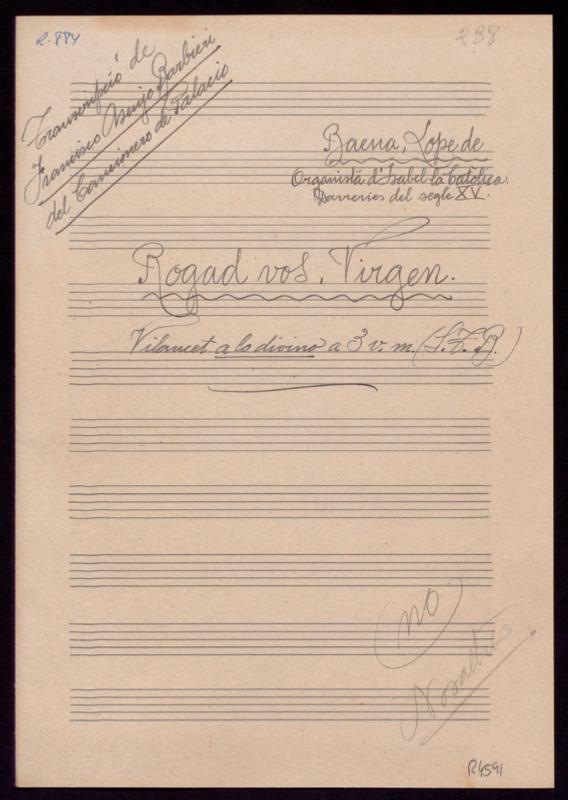 R-884
288
Transcripció de
Francisco Asenjo Barbieri
del Cancionero de Palacio
Baena, Lope de
Organista d'Isabel la Catòlica.
Darreries del segle XV.
Rogad vos, Virgen.
Vilancet a lo divino a 3 v. m. (S.T.B.)
no
R4591